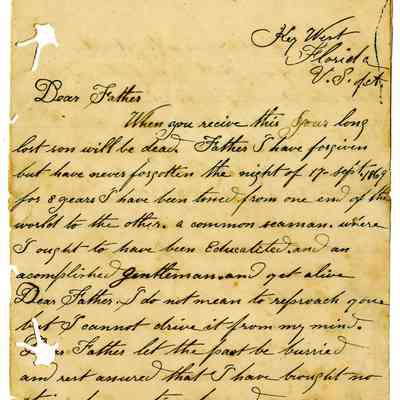 Key West
Florida
U.S.
Dear Father
When you recive this your long
lost son will be dead. Father I have forgiven
but have never forgotten the night of 17. Sept. 1869
for 8 years I have been tossed from one end of the
world to the other. a common seaman. where
I ought to have been Educateted. and an
acomplished gentleman. and yet alive
Dear Father. I do not mean to reproach you
but I cannot drive it from my mind.
Father let the past be burried
and rest assured that I have brought no